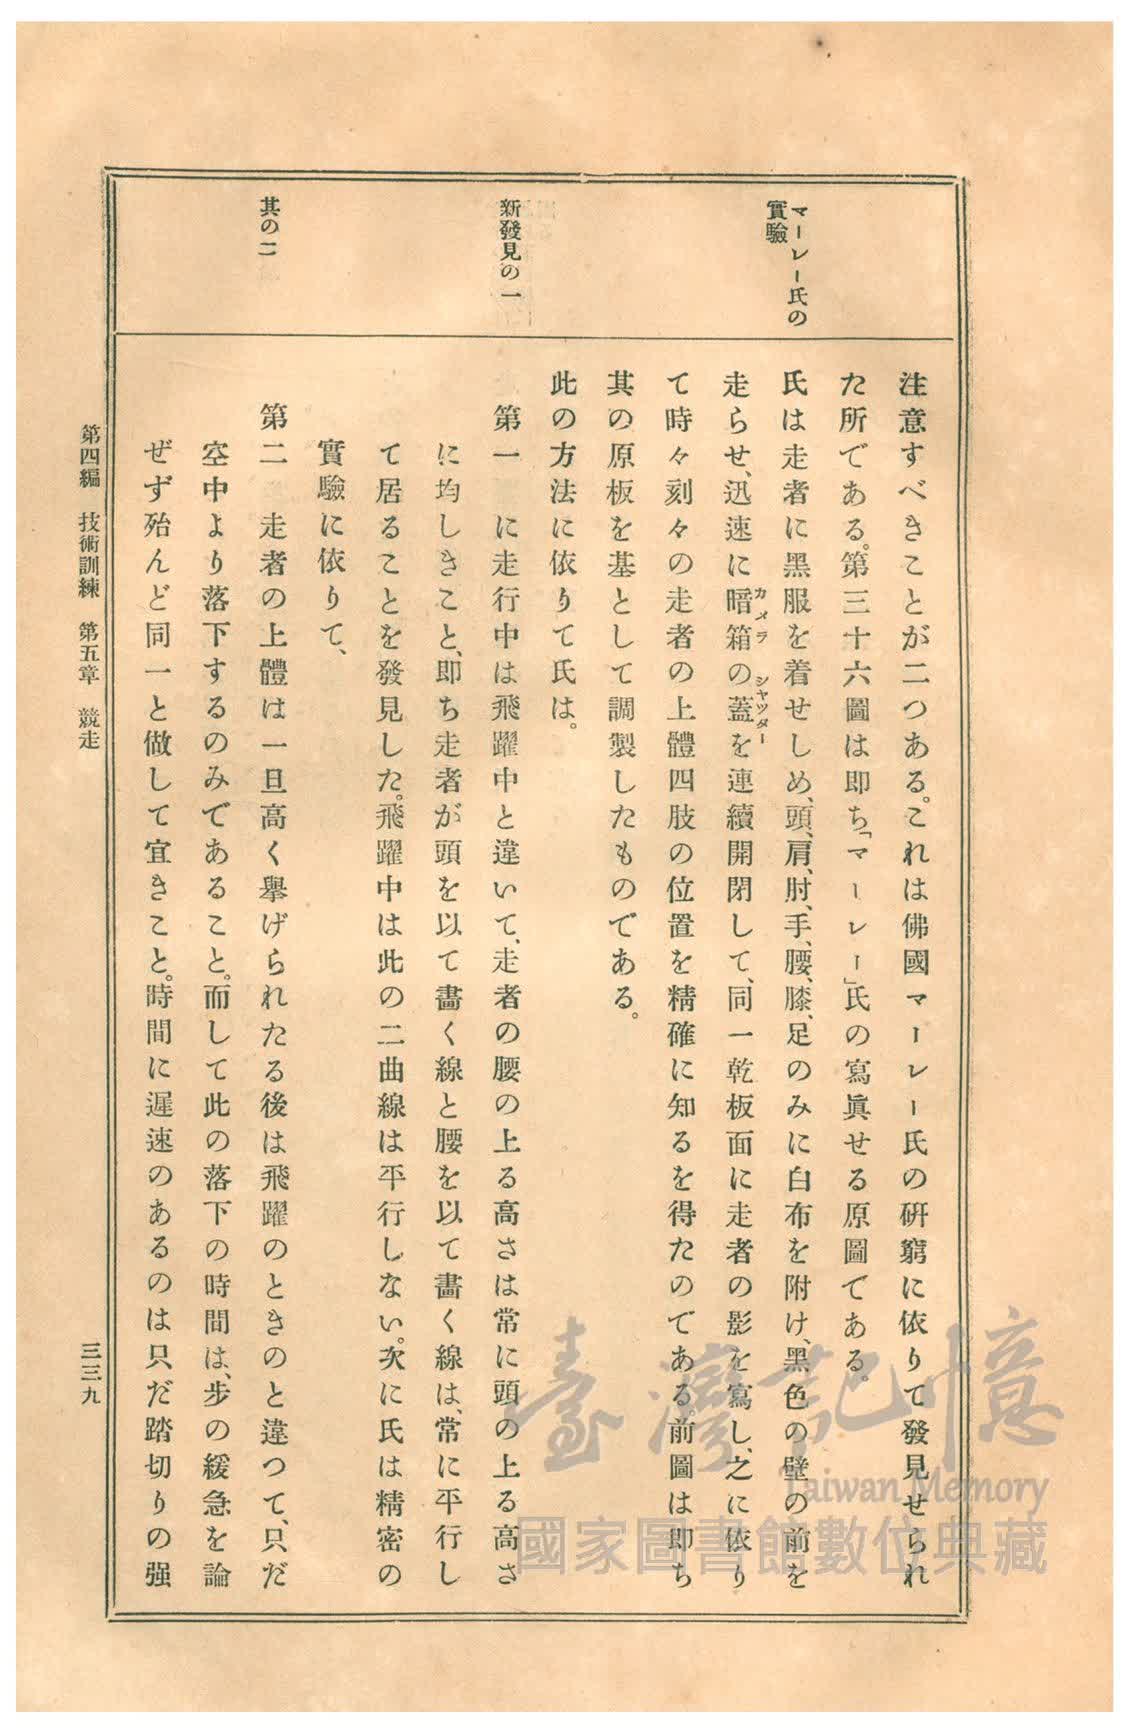 マーレー氏の
實驗
新發見の一
其の二
注意すべきことが二つある。これは佛國マーレー氏の研窮に依りて發見せられ
た所である。第三十六圖は即ち「マーレー」氏の寫眞せる原圖である。
氏は走者に黑服を着せしめ、頭、肩、肘、手、腰、膝、足のみに白布を附け、黑色の壁の前を
走らせ、迅速に暗箱の蓋を連續開閉して、同一乾板面に走者の影を寫し、之に依り
カメラ シヤツダー
て時々刻々の走者の上體四肢の位置を精確に知るを得たのである。前圖は即ち
其の原板を基として調製したものである。
此の方法に依りて氏は。
第一 に走行中は飛躍中と違いて、走者の腰の上る高さは常に頭の上る高さ
に均しきこと、即ち走者が頭を以て畵く線と腰を以て畵く線は、常に平行し
て居ることを發見した。飛躍中は此の二曲線は平行しない。次に氏は精密の
實驗に依りて、
第二 走者の上體は一旦高く擧げられたる後は飛躍のときのと違つて、只だ
空中より落下するのみであること。而して此の落下の時間は、步の緩急を論
ぜず殆んど同一と做して宜きこと。時間に遲速のあるのは只だ踏切りの强
第四編 技術訓練 第五章 競走
三三九
臺灣記憶
Taiwan Memory
國家圖書館數位典藏